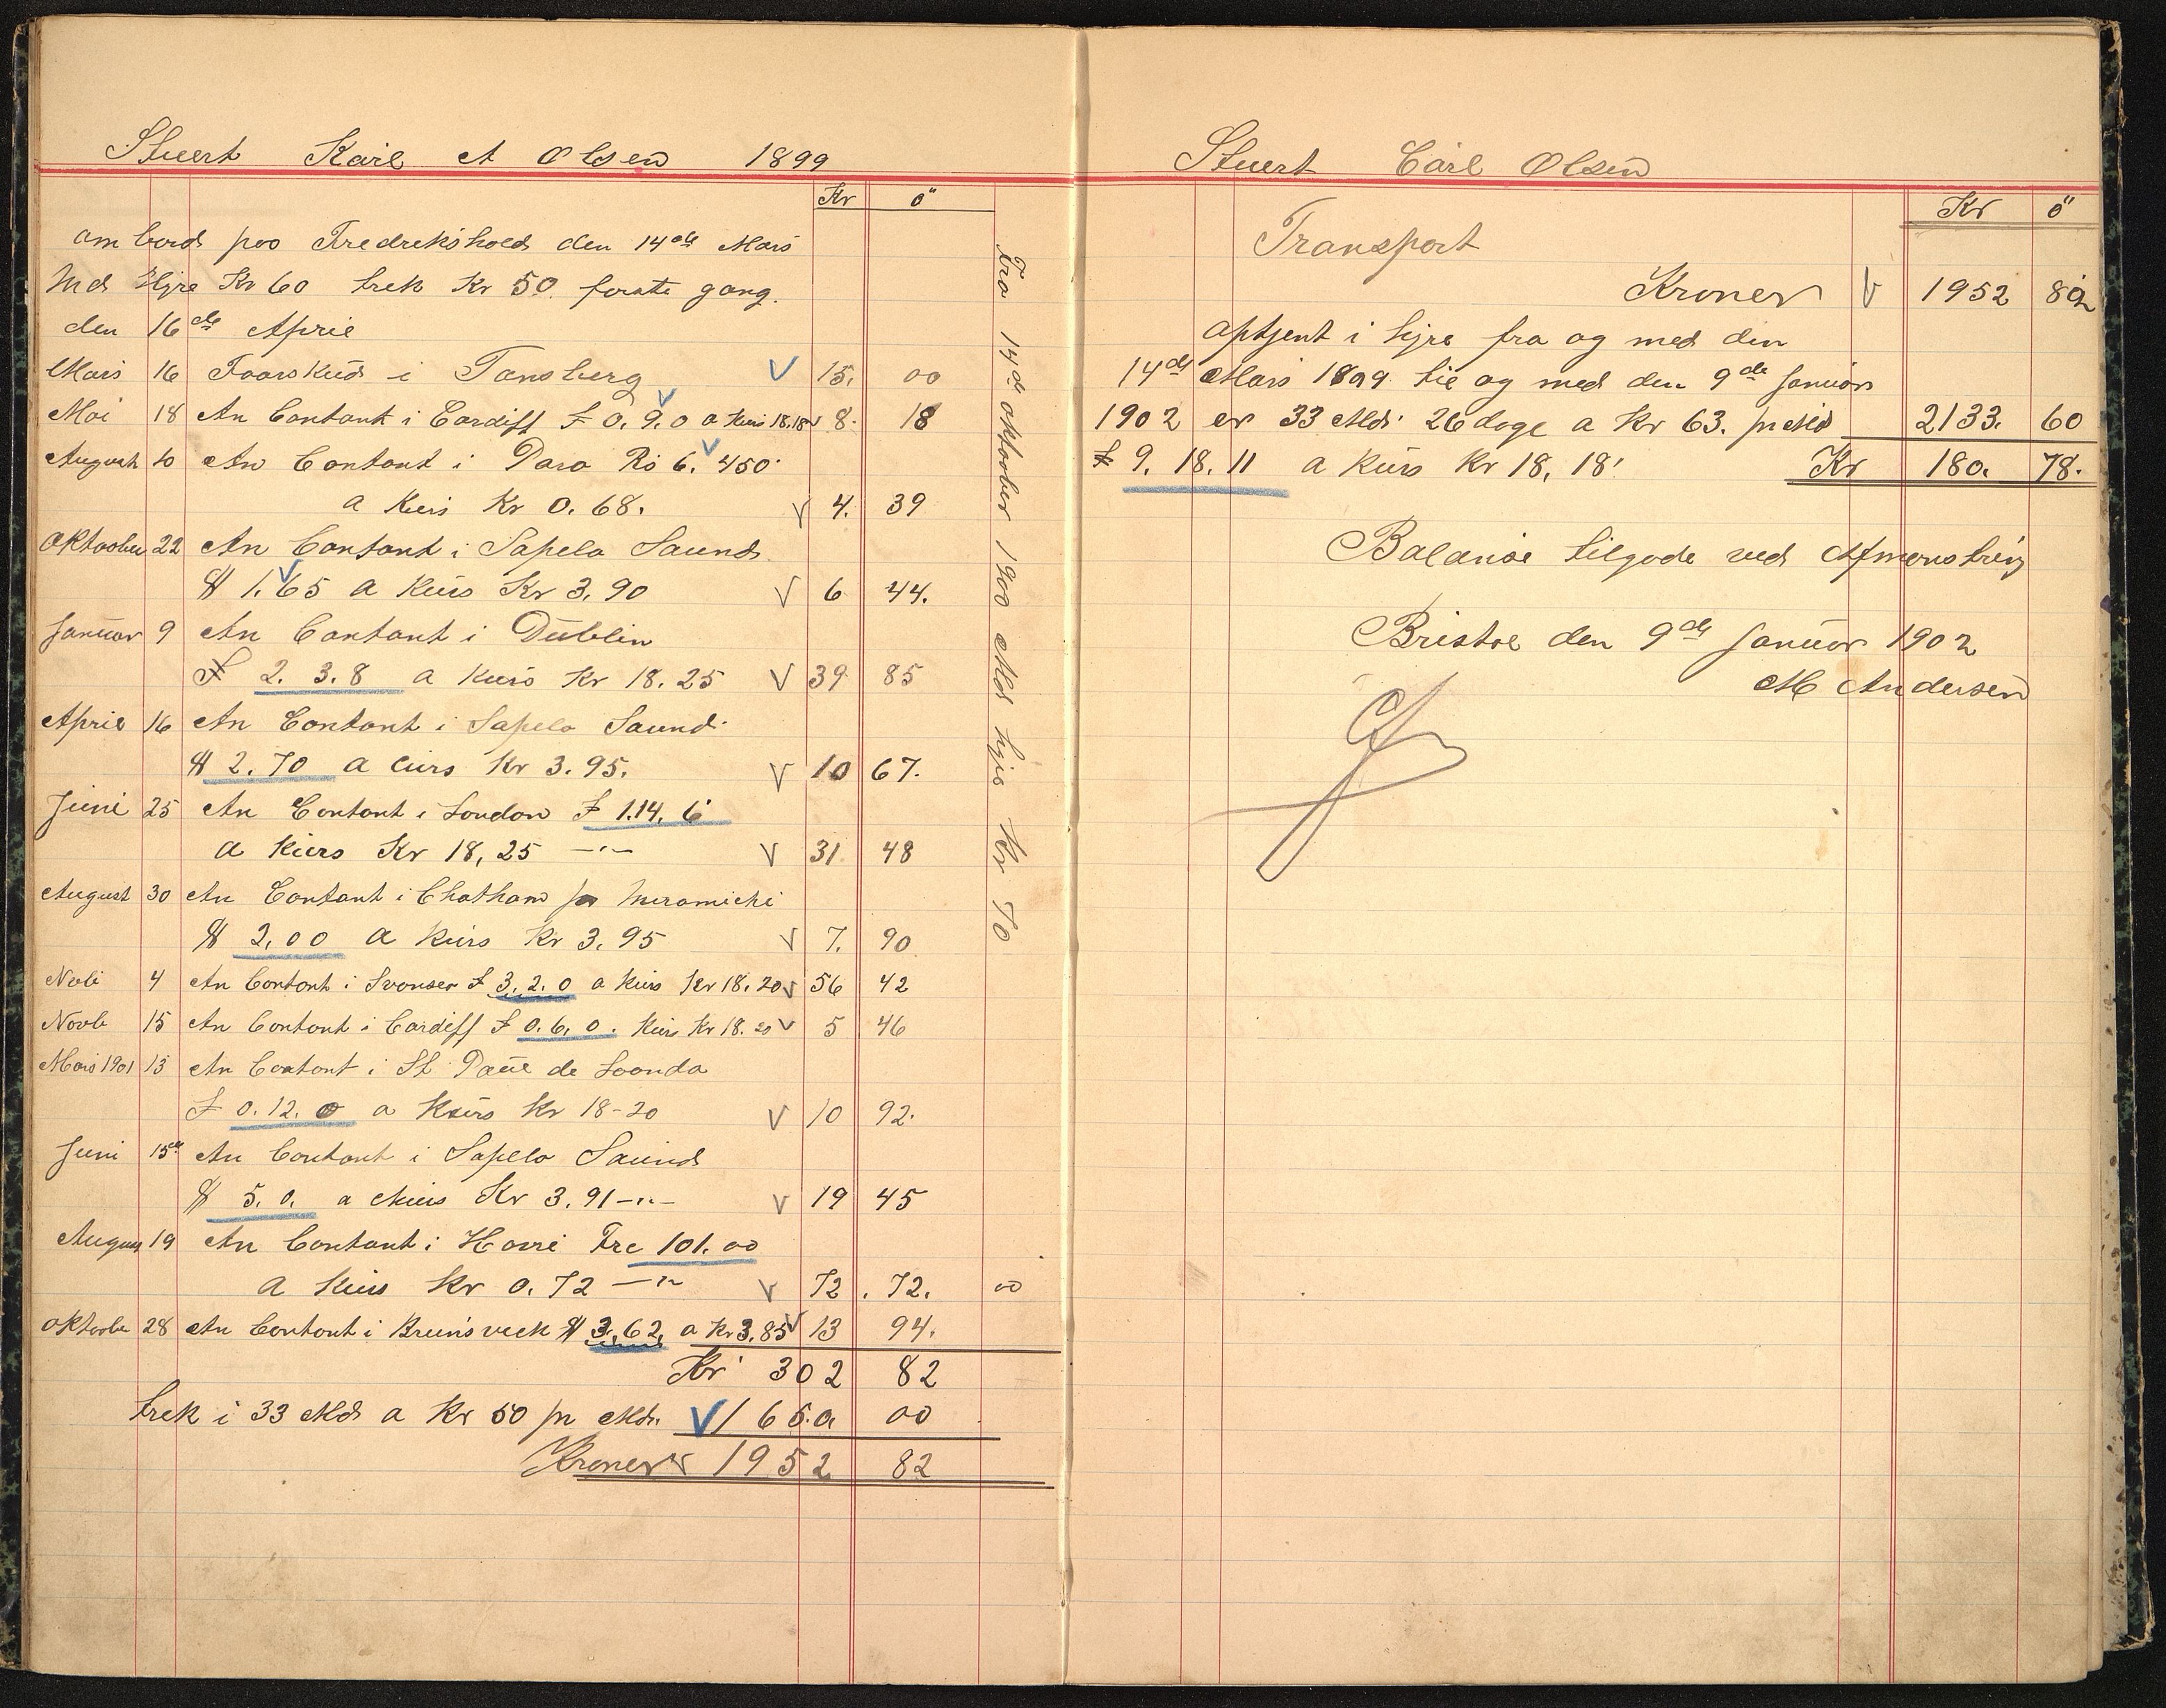 Stuert Karl A Olsen 1899
Kr ö
om bord paa Fredrekshald den 14de Mars
Med Hyre Kr 60 trek Kr 50 forste gang.
den 16de April
Mars 16 Foorskud i Tonsberg V 15. 00
Mai 18 An Contant i Cardiff £ 0. 9. 0 a Kurs 18.18 V 8. 18
August 10 An Contant i Para Rs 6. 450
a Kurs Kr 0. 68. V 4. 39
Oktoober 22 An Contant i Sapelo Saund
$ 1. 65 a Kurs Kr 3. 90 V 6 44.
Januar 9 An Contant i Dublin
£ 2. 3. 8 a Kurs Kr 18. 25 V 39 85
April 16 An Contant i Sapelo Saund
$ 2. 70 a Curs Kr 3. 95. V 10 67.
Juni 25 An Contant i London £ 1.14. 6
a Kurs Kr 18, 25 —"— V 31 48
August 30 An Contant i Chatham Miramichi
$ 2, 00 a Kurs Kr 3. 95 V 7. 90
Nvbr 4 An Contant i Svonsea £ 3. 2. 0 a Kurs Kr 18. 20 V 56 42
Novb 15 An Contant i Cardiff £ 0. 6, 0. Kurs Kr 18. 20 V 5 46
Mars 1901 13 An Contant i St Paul de Loanda
£ 0. 12. 0 a Kurs Kr 18-20 V 10 92.
Juni 15de An Contant i Sapelo Saund
$ 5. 0. a Kurs Kr 3. 91 —"— V 19 45
August 19 An Contant i Havre Frc 101. 00
a Kurs Kr 0. 72 —"— V 72 . 72. 00
Oktoobe 28 An Contant i Brunsveck $ 3. 62. a Kr 3. 85 V 13 94.
Kr 302 82
trek i 33 Md a Kr 50 pr Md. V 1650 00
Kroner 1952 82
Fra 14d Oktoober 1900 Md hyre Kr 70
Stuert Carl Olsen
Kr ö
Transport
Kroner V 1952 82
optjent i hyre fra og med den
14de Mars 1899 til og med den 9de Januar
1902 er 33 Md. 26 dage a Kr 63. pr Md 2133. 60
£ 9. 18. 11 a Kurs Kr 18, 18 Kr 180. 78.
Balanse tilgode ved Afmonstring
Bristol den 9de Januar 1902
M Andersen